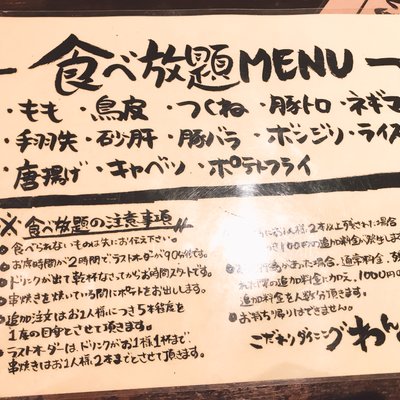 食べ放題MENU
・もも ・鳥皮 ・つくね ・豚トロ ・ネギマ
・手羽先 ・砂肝 ・豚バラ ・ボンジリ ・ライス
・唐揚げ ・キャベツ ・ポテトフライ
※食べ放題の注意事項
食べられないものは先にお伝え下さい。
お席時間が2時間でラストオーダーが90分です。
ドリンクが出て乾杯なさってからお時間スタートです。
串焼きを焼いている間にポテトをお出しします。
追加注文はお1人様につき5本程度を
1度の目安とさせて頂きます。
ラストオーダーは、ドリンクがお1人様1杯まで
串焼きはお1人様、2本までとさせて頂きます。
お1人様2本以上残された場合
100円の追加料金が発生しま
があった場合、通常料金、
の追加料金に加え、1000円の
追加料金を人数分頂きます。
お持ち帰りはできません。
こだわりダイニング わん